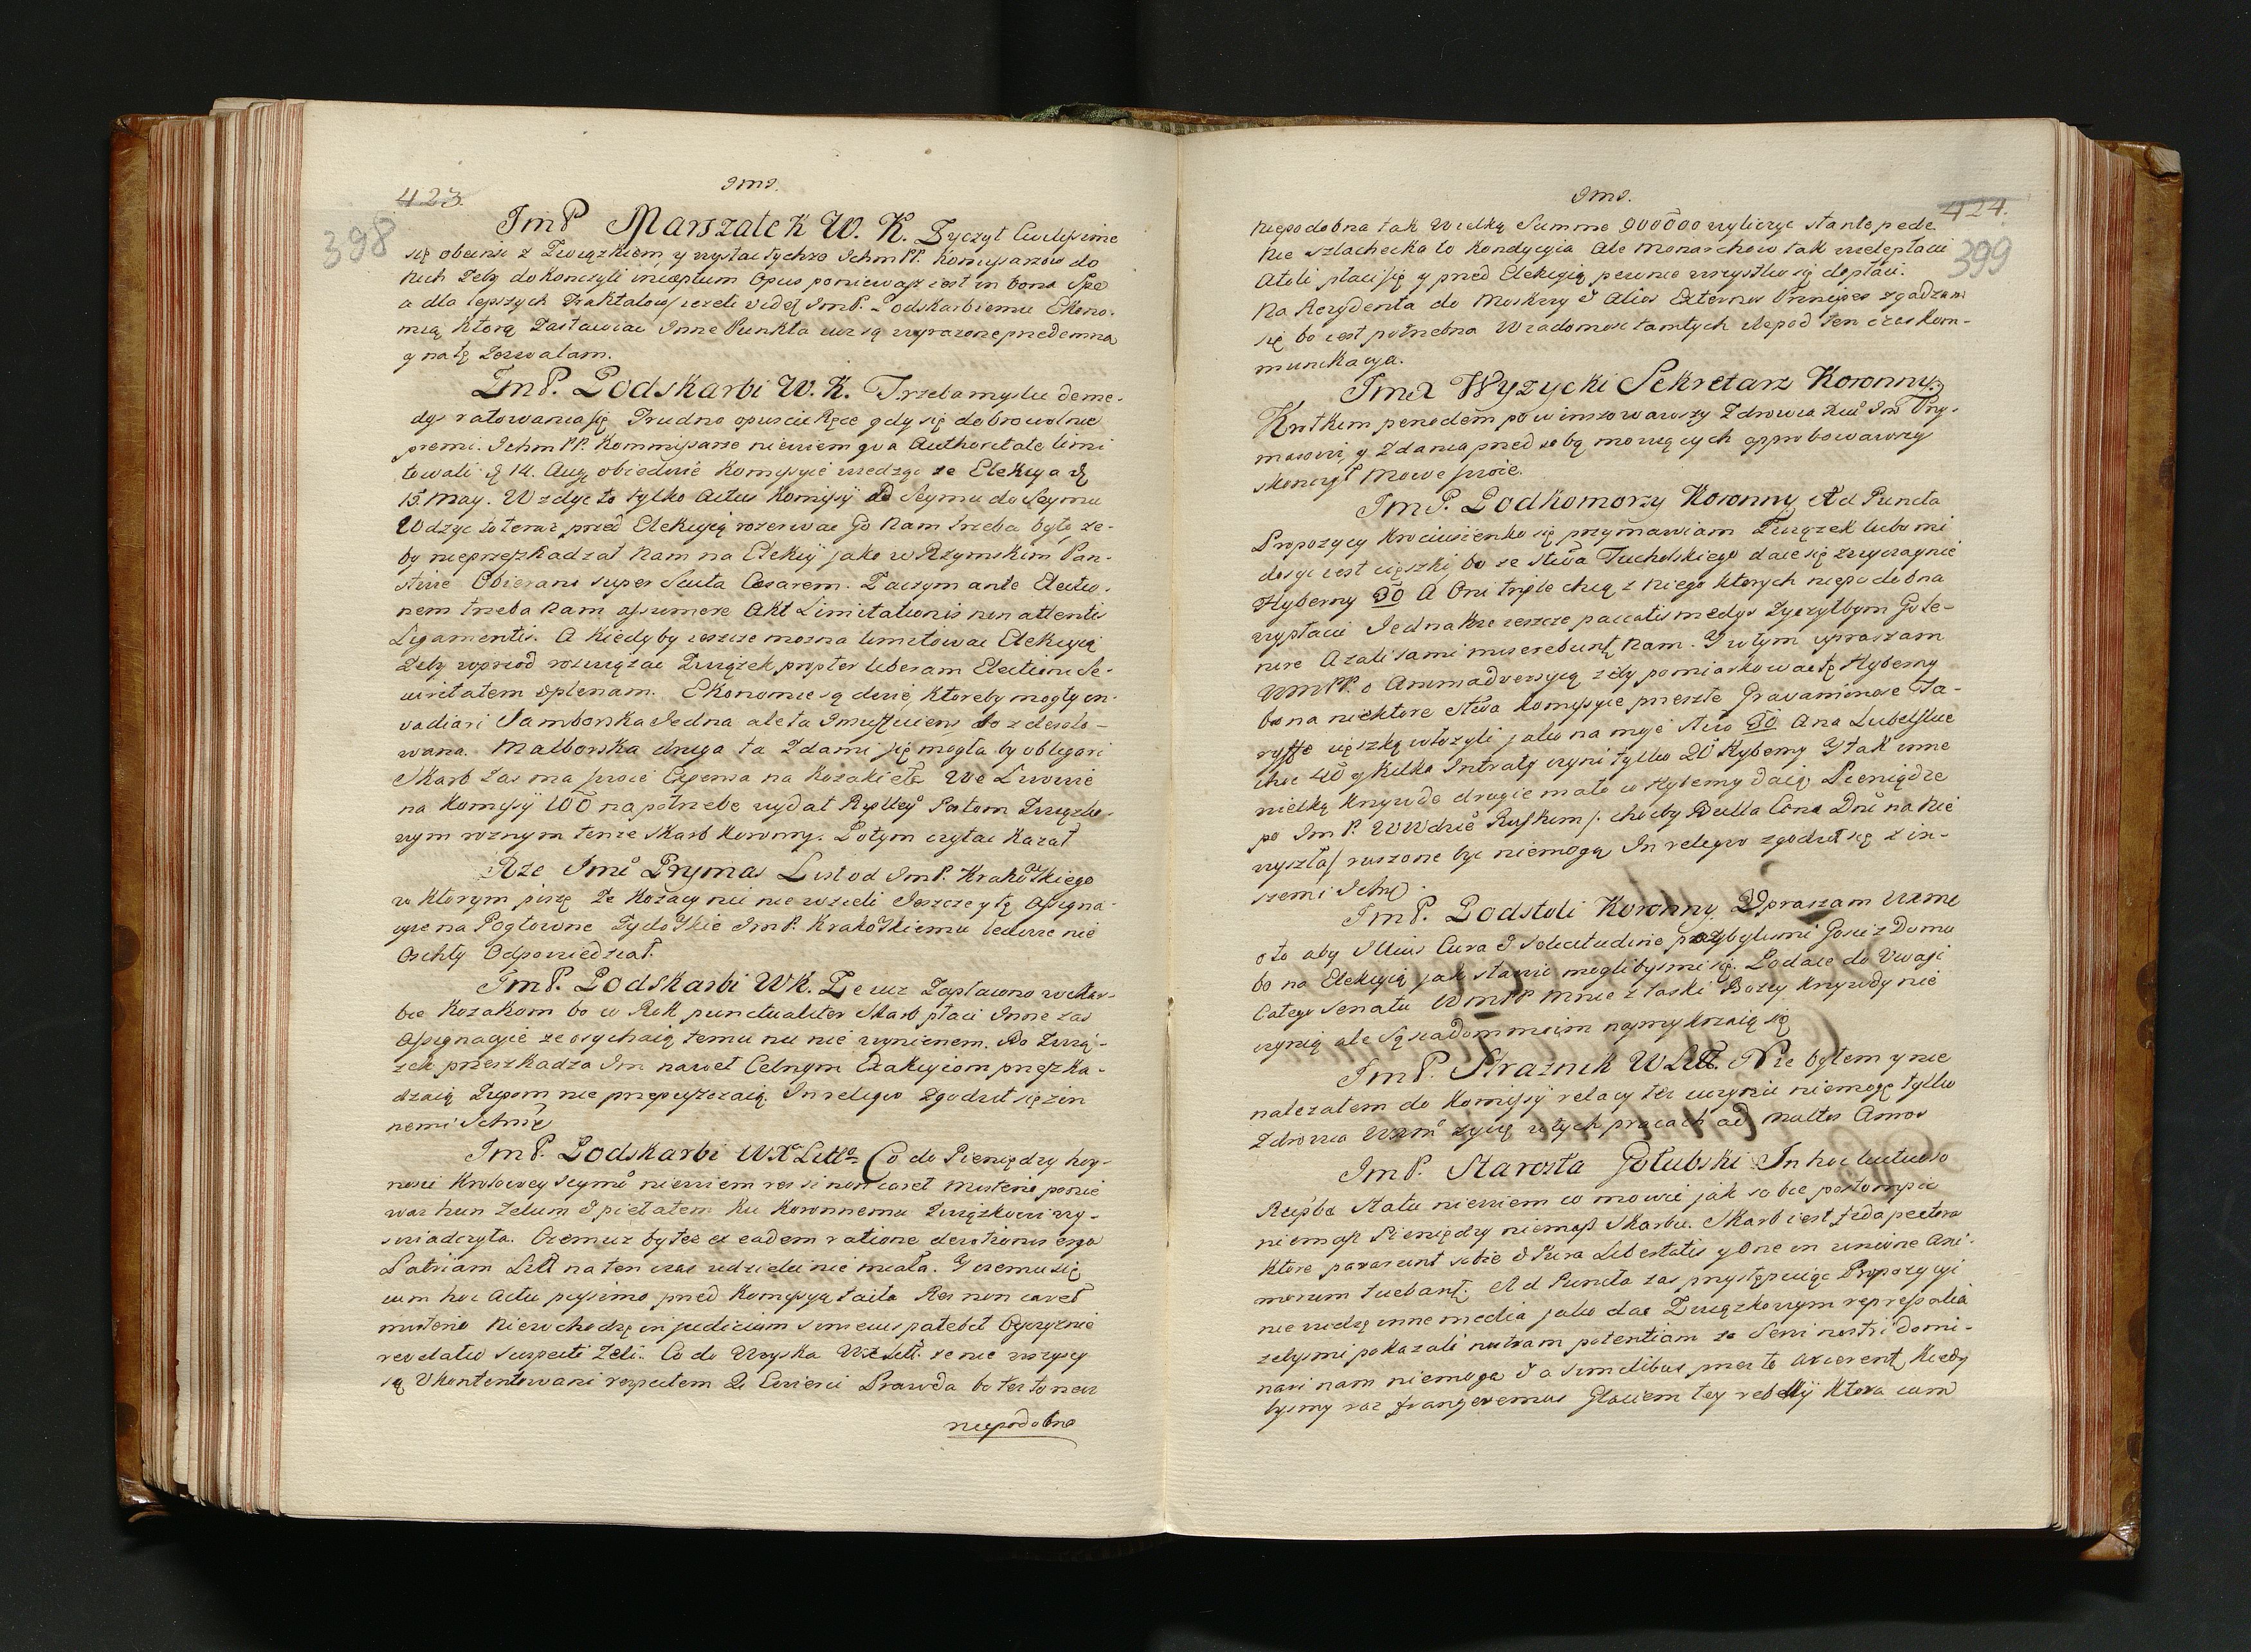 423.
398
JmP Marszałek W. K. Zyczył Civilissime
się obeniść z Związkiem y wysłać tychże Ichm PP. Komyssarzow do
nich Zeby dokonczyli inceptum Opus poniewasz iest in bona Spe
a dla lepszych Traktatow jezeli widą JmP. Podskarbiemu Ekono-
mią ktorą Zastawiac Inne Punkta iusz są wyrazone przedemną
y na tę Zezwalam.
JmP. Podskarbi W. K. Trzeba myslic de me-
dys ratowania się Trudno opuscic Ręce gdy się dobrowolnie
premi. Ichm PP. Kommissarze niewiem qua Authoritate limi
towali 14. Aug obiedwie Komyssyie wiedząc ze Elekcya
15 May. Wzdyc to tylko Actus Komissyi od Seymu do Seymu
Wdzyc to teraz przed Elekcyią rozerwac Go nam trzeba było ze-
by nieprzeszkadzał nam na Elekcyi jako w Rzymskim Pan-
stwie Obierano super Scuta Cesarem. Zaczym ante Electio-
nem trzeba nam assumere Akt Limitationis non attentis
Ligamentis. A kiedyby ieszcze mozna limitowac Elekcyią
Zeby wprzod rozwiązac Związek propter liberam Electionis Se-
curitatem & plenam. Ekonomie są dwie, ktoreby mogły in-
vadiari Samborska Jedna ale ta Insufficiens bo zdezelo-
wana. Malborska druga ta Zdami się mogła by obligari
Skarb zas ma swoie Expensa na Kozaki etc We Lwowie
na Komissyi 100 na potrzebe wydał Rzpltey Posłom Związko-
wym roznym tenze Skarb Koronny. Potym czytac kazał
Xze Jmc Prymas List od JmP. Krakowskiego
w ktorym pisze Ze Kozacy nic nie wzieli Jeszcze y tą Assigna-
cyie na Pogłowne Zydowskie JmP. Krakowskiemu ledwie nie
oschły Odpowiedział.
JmP. Podskarbi WK. Zeusz Zapłacono w Skar-
bie Kozakom bo co Rok punctualiter Skarb płaci Inne zas
Assignacyie ze osychaią temu nic nie uczyniemy. Bo Zwią-
zek przeszkadza Im nawet Celnym Exakcyiom przeszka-
dzaią Zupom nie przepuszczaią In reliquo Zgodził się z in
nemi Ichmc
JmP. Podskarbi W.X. Litto Co do Pieniędzy hoy-
nosci Krolowey Jeymc niewiem res si non caret misterio ponie
waz hunc Zelum & pietatem ku Koronnemu Związkowi wy-
swiadczyła. Czemusz by też ex eadem ratione devotionis erga
Patriam Litt na ten czas udzielic nie miała. Y czemu się
cum hoc Actu pyszimo przed Komyssyą taiła Res non caret
misterio Niewchodzę in judicium Sincerus patebit Oyczyznie
revelatio Suspecti Zeli. Co do Woyska WX Litt. ze nie wszyscy
są Ukontentowani respectem 2 Cwierci Prawda bo tez to nasz
niepodobna
424.
399
Niepodobna tak Wielką Summe 900000 wyliczyc stante pede
Nie szlachecka to Kondycyia Ale Monarchow tak wiele płacic
Atoli płaci się y przed Elekcyią pewnie wszystko się dopłaci.
Na Rezydenta do Moskwy & Alios Externos Principes zgadzam
się bo iest potrzebna Wiadomosc tamtych y pod ten czas Kom-
munikacya.
JmX Wyzycki Sekretarz Koronny.
Krotkim peryodem powinszowawszy Zdrowia Xciu Jmci Pry-
masowi, y Zdania przed sobą mowiących approbowawszy
skonczył Mowe swoie.
JmP. Podkomorzy Koronny Ad Puncta
Propozycyi krociusienko się przymawiam Związek lubo mi
dosyc iest cięszki, bo ze Stwa Tucholskiego daie się zwyczaynie
Hyberny 30 A Oni triple chcą z niego ktorych niepodobna
wypłacic Jednakże ieszcze paccatis medys Zyczyłbym Go le-
nire Azali sami miserebunt Nam. Y w tym upraszam
WMPP. o Animadversyią zeby pomiarkowac tę Hyberny
bo na niektore Stwa Komyssyie przeszłe Gravaminose Ta-
ryffe cięszką włozyli jako na moje Stwo 30 A na Lubelskie
choc 40 y kilka Intraty czyni tylko 20 Hyberny Y tak inne
wielką krzywde drugie mało co Hyberny daią Pieniądze
po JmP. WWdzie Ruskim /: choćby Bulla Cena Dni na nie
wyszła/ ruszone byc niemogą In reliquo zgodził się z in-
szemi Ichmc
JmP. Podstoli Koronny Upraszam Xcia Jme
oto aby Illius Cura & Solicitudine przybylismi Gosci z Domu
bo na Elekcyią jak stawic moglibysmi się. Podaie do Uwagi
Całego Senatu WMPP mnie z łaski Bozey krzywdy nie
czynią ale Sąsiadom moim naprzykrzaią się
JmP. Straznik W Litt. Nie byłem y nie
nalezałem do Komissyi relacyi tez uczynic niemogę tylko
Zdrowia WXMci zyczę w tych pracach ad multos Annos
JmP. Starosta Gołubski In hoc luctuoso
Reipbce Statu niewiem co mowic jak sobie postompic
niemasz Pieniędzy niemasz Skarbu. Skarb iest fida pectora
Ktore pararunt sobie & Jura Libertatis y One in unione Ani-
morum tuebant. Ad Puncta zas przystępuiąc Propozycyi
nie widzę inne media jako dac Związkowym represalia
zebysmi pokazali nostram potentiam ze Servi nostri domi-
nari nam niemogą & a similibus przez to arcerent, Kiedy
bysmy raz frangeremus Glaciem tey rebelyi ktora cum